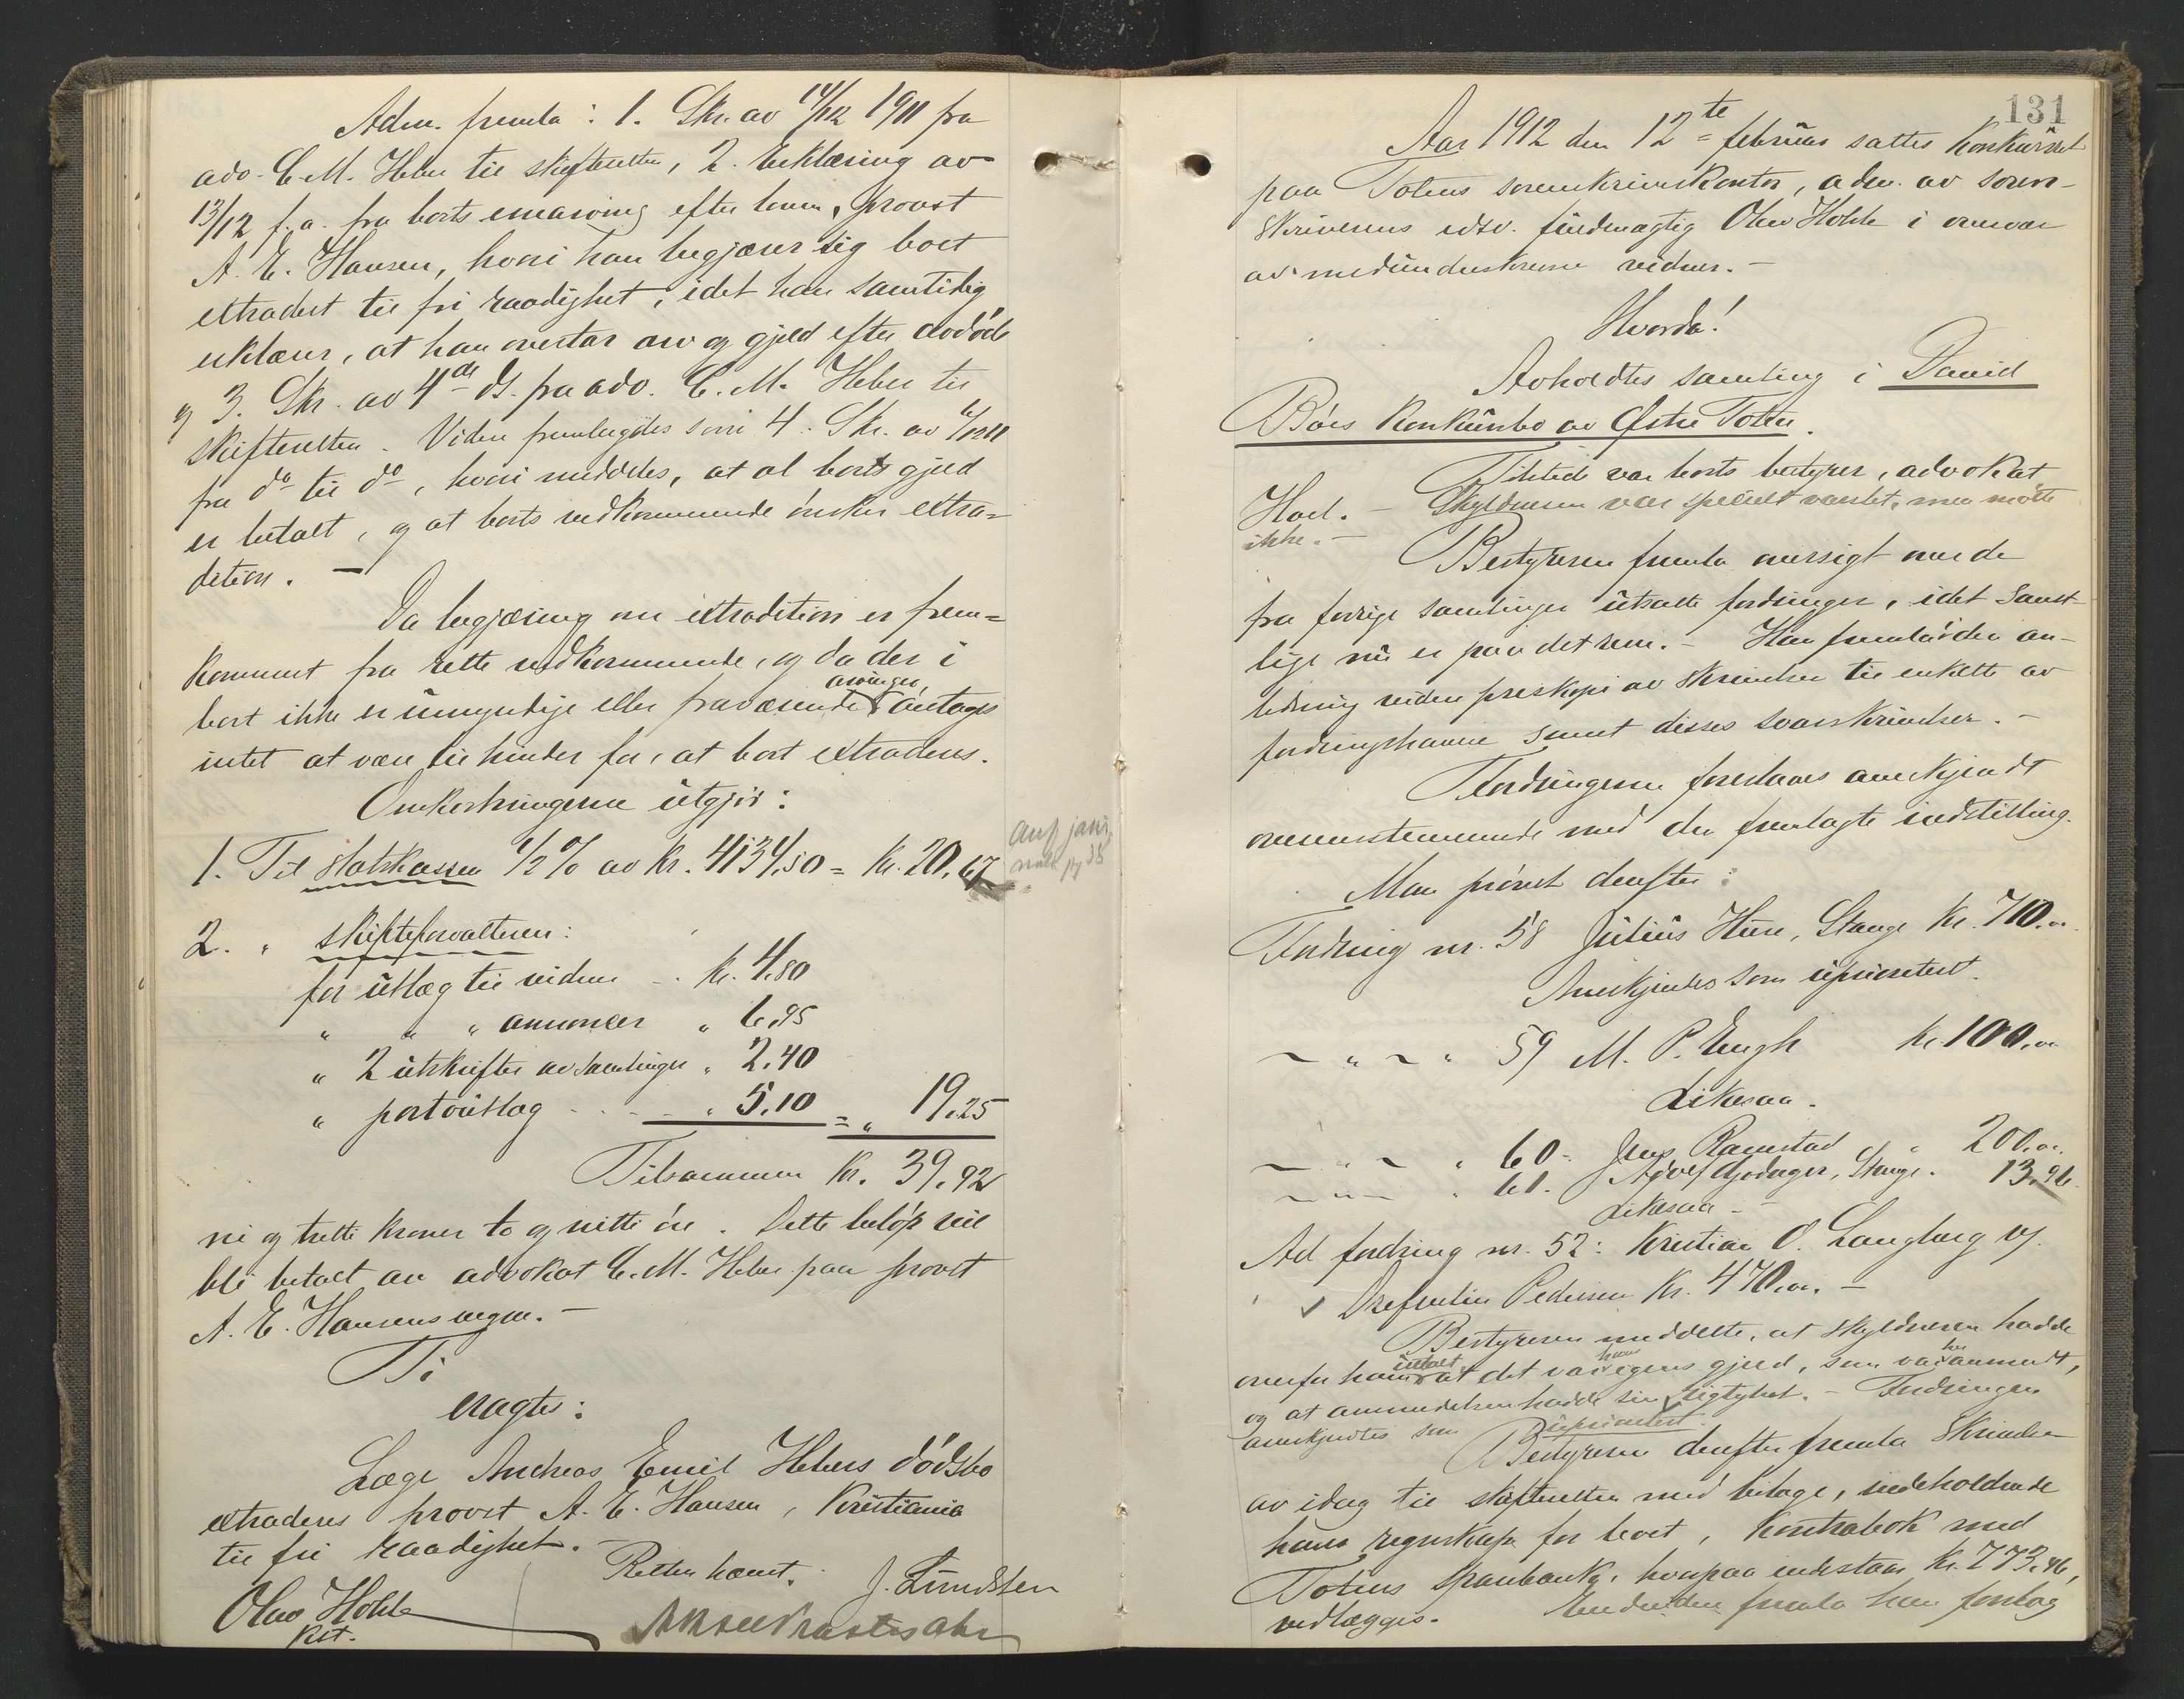 Adm. fremla: 1. Skr. av 14/12 1911 fra
adv. C. M. Heber til skifteretten, 2. Erklæring av
13/12 f. a. fra boets enearving efter loven, provst
A. E. Hansen, hvori han begjærer sig boet
extradert til fri raadighet, idet han samtidig
erklærer, at han overtar arv og gjeld efter avdøde
og 3. Skr. av 4de ds. fra adv. C. M. Heber til
skifteretten. Videre fremlagdes som 4. Skr. av
fra do til do, hvori meddeles, at al boets gjeld
er betalt, og at boets vedkommende ønsker extra=
dition. —
Da begjæring om extradition er frem=
kommet fra rette vedkommende, og da der i
boet ikke er umyndige eller fraværende arvinger, antages
intet at være til hinder for, at boet extraderes.
Omkostningerne utgjør:
1. Til Statskassen 1/2 % av kr. 4134,50 = kr. 20,67
2. " skifteforvalteren:
for utlæg til vidner - kr. 4,80
" " " annoncer " 6,95
" 2 utskrifter av samlinger " 2.40
" portoutlæg - - - " 5.10 = " 19,25
Tilsammen kr. 39,92
ni og tretti kroner to og nitti øre. Dette beløp vil
bli betalt av advokat C. M. Heber paa provst
A. E. Hansens vegne. —
Ti
eragtes:
Læge Andreas Emil Hebers dødsbo
extraderes provst A. E. Hansen, Kristiania
til fri raadighet.
Retten hævet.
Olav Hohle
kst.
J. Lundsten
131
Aar 1912 den 12te februar sattes Konkursret
paa Totens sorenskriverkontor, adm. av soren-
skriverens edsv. fuldmægtig Olav Hohle i overvær
av medunderskrevne vidner. —
Hvorda!
Avholdtes samling i David
Bøes Konkursbo av Østre Toten.
Tilstede var boets bestyrer, advokat
Hoel. — Skyldneren var specielt varslet, men møtte
ikke. —
Bestyreren fremla oversigt over de
fra forrige samlinger utsatte fordringer, idet samt-
lige nu er paa det rene. — Han fremla i den an-
ledning videre preskopi av skrivelser til enkelte av
fordringshaverne samt disses svarskrivelser. —
Fordringerne foreslaaes anerkjendt
overensstemmende med den fremlagte indstilling.
Man prøvet derefter:
Fordring nr. 58 Julius Hure, Stange kr. 710.oo.
Anerkjendes som uprioritert.
— " — " 59 M. P. Engh kr. 100.oo
Likesaa.
— " — " 60. Jens Ramstad " 200.oo.
— " — " 61. Adolf Godager, Stange. 13,96.
Likesaa -
Ad fordring nr. 52: Kristian O. Langberg og
Pedersen kr. 470.oo. —
Bestyreren meddelte, at skyldneren hadde
overfor ham uttalt at det var hans egens gjeld, som var her anmeldt,
og at anmeldelsen hadde sin rigtighet. — Fordringen
anerkjendtes som uprioritert.
Bestyreren derefter fremla skrivelse
av idag til skifteretten med bilage, indeholdende
hans regnskap for boet, Kontrabok med
Totens Sparebank, hvorpaa indestaar kr. 773.46,
vedlægges. Endvidere fremla han forslag